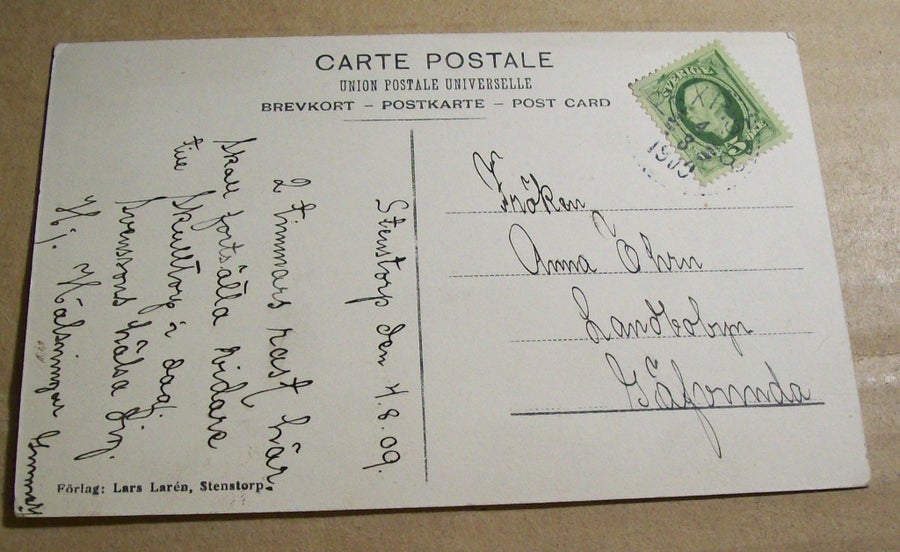 CARTE POSTALE
UNION POSTALE UNIVERSELLE
BREVKORT – POSTKARTE – POST CARD
SVERIGE
1909
Stenstorp den 4.8.09.
2 timmars rast här.
Skall fortsätta vidare
till Skultorp i dag;
Svenssons hälsa Dig.
Hj. Hälsningar
Fröken
Anna Öhrn
Landtobyn
Gäfvunda
Förlag: Lars Larén, Stenstorp.